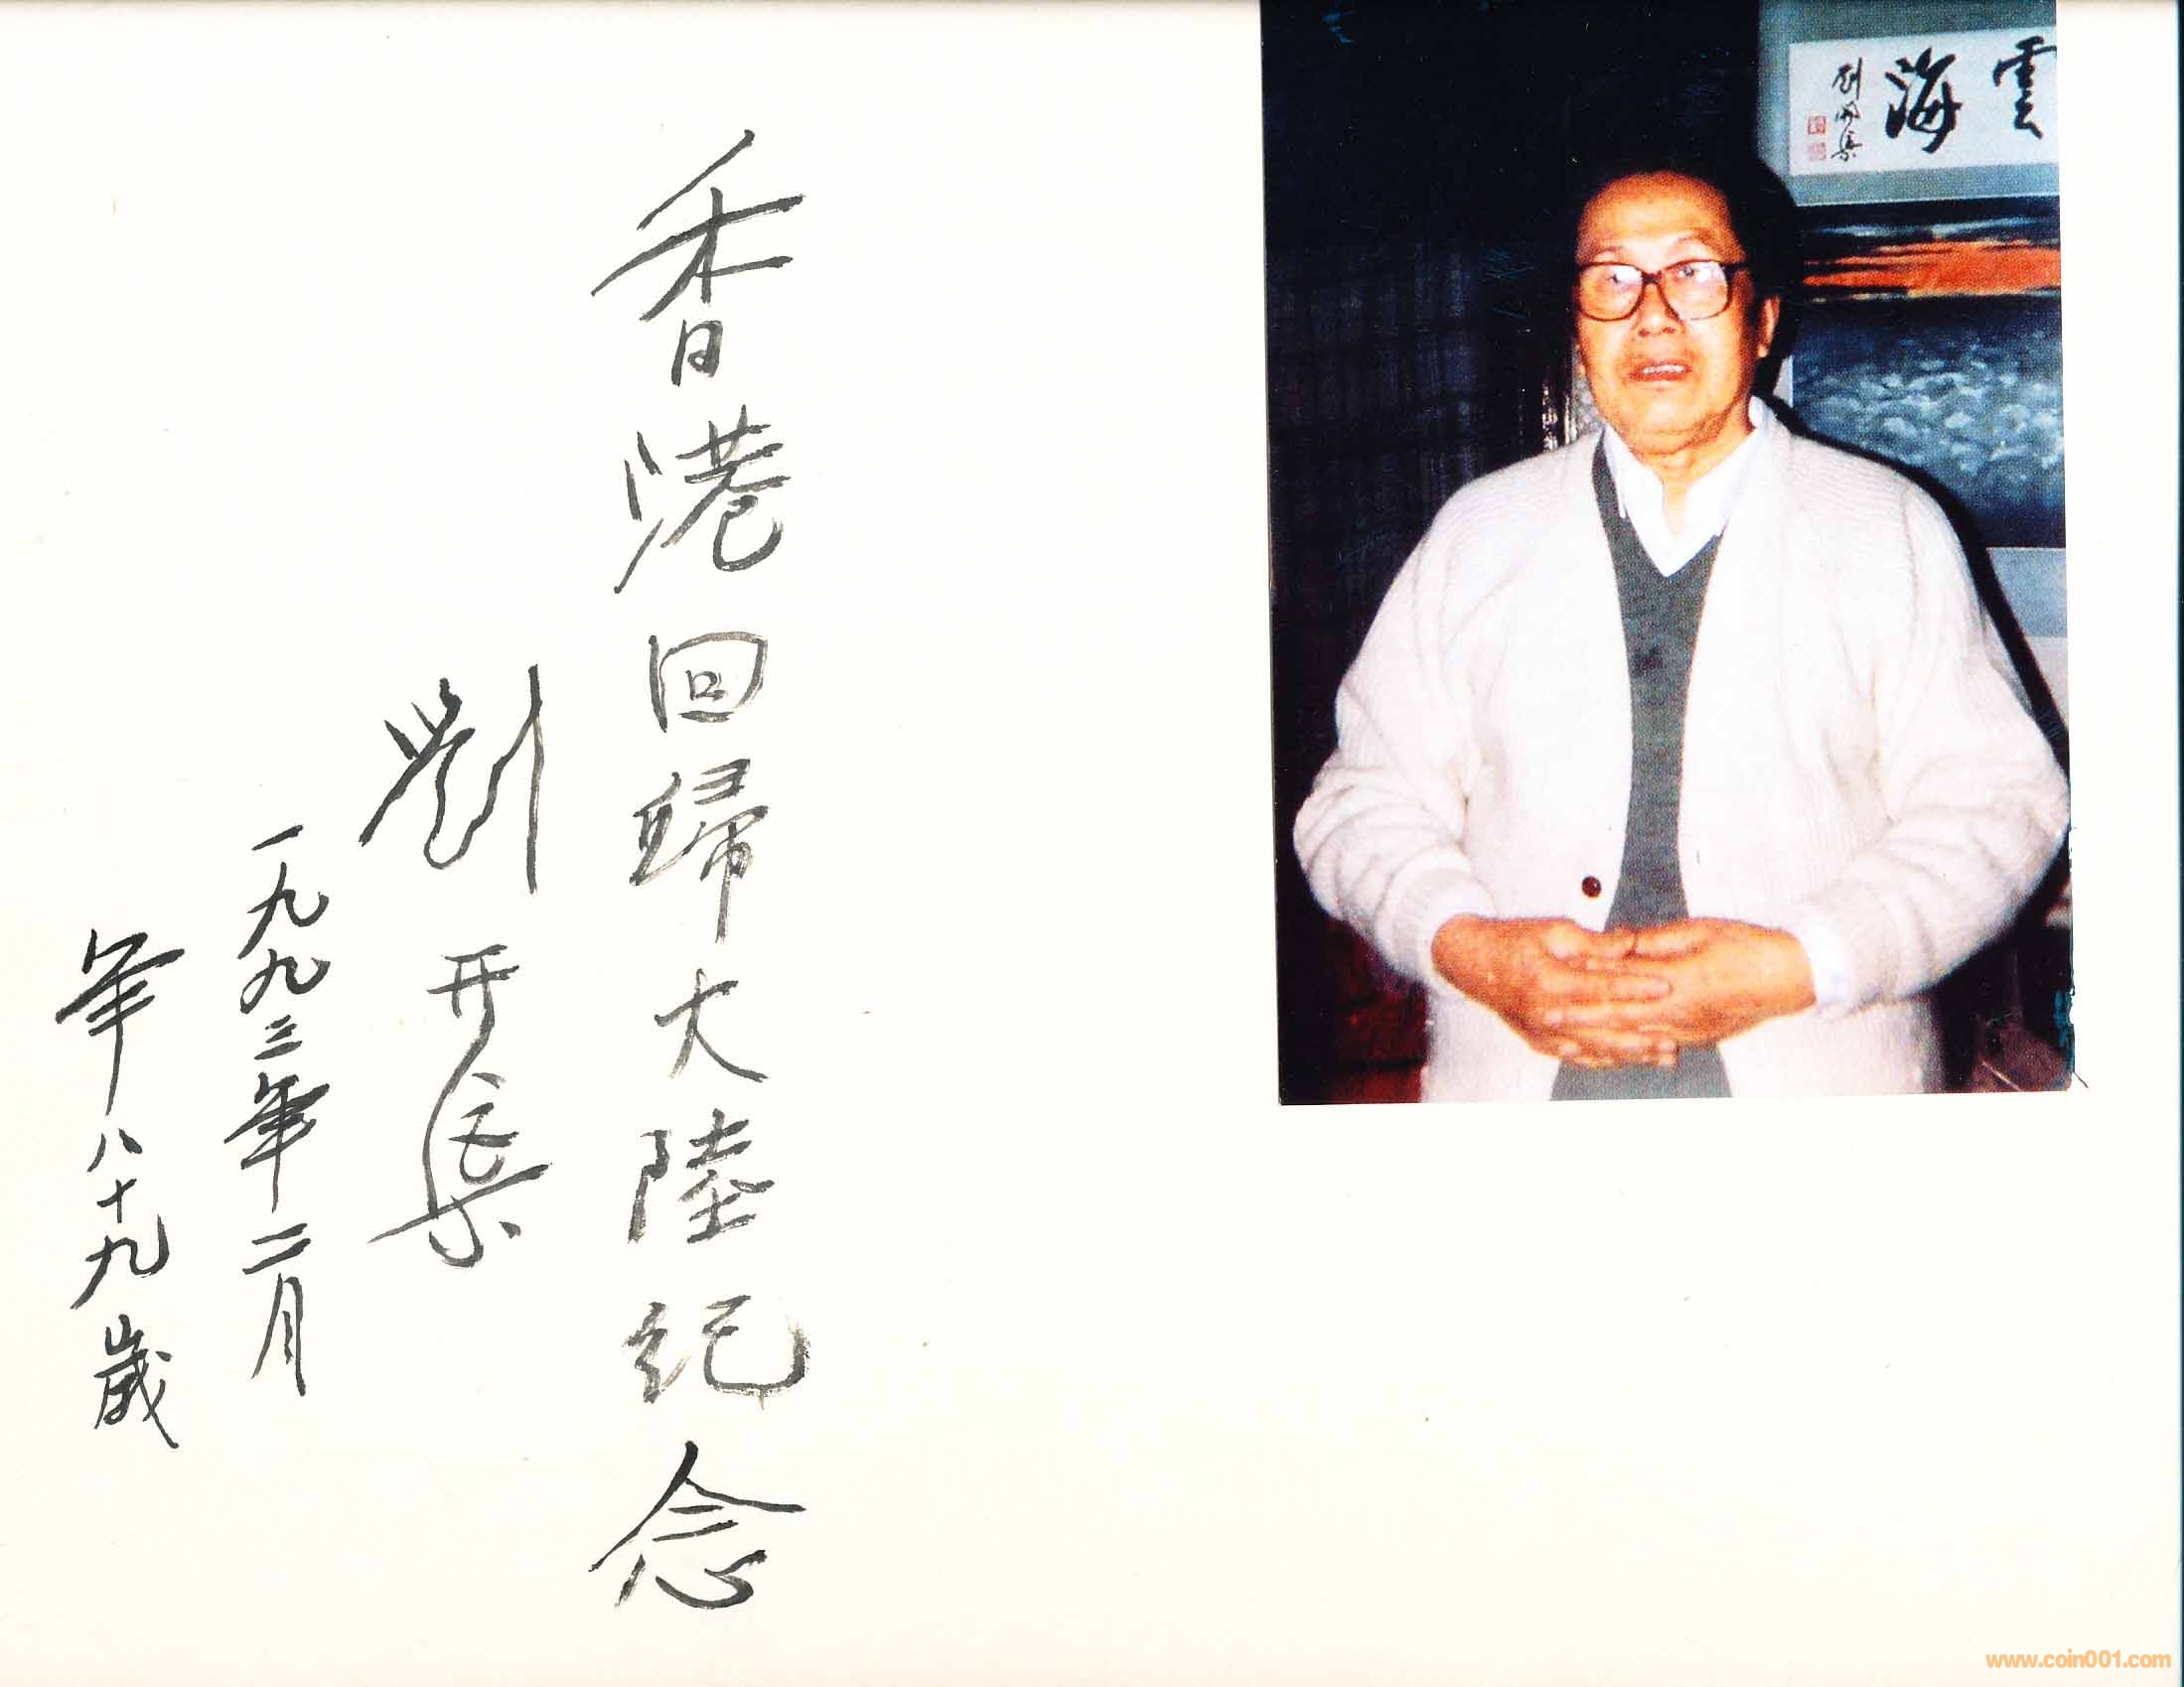 香港回歸大陸纪念
劉开渠
一九九三年二月
年八十九歲
雲海
劉開渠
www.coin001.com